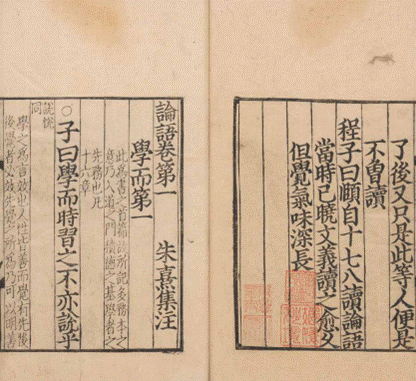 了後又只是此等人便是
不曽讀
程子曰頤自十七八讀論語
當時已曉文義讀之愈久
但覺氣味深長
論語卷第一
朱熹集注
學而第一
此為書之首篇故所記多務本之
意乃入道之門積德之基學者之
先務也凡
十六章
○子曰學而時習之不亦說乎
說悅
同
學之為言效也人性皆善而覺有先後
後覺者必效先覺之所為乃可以明善